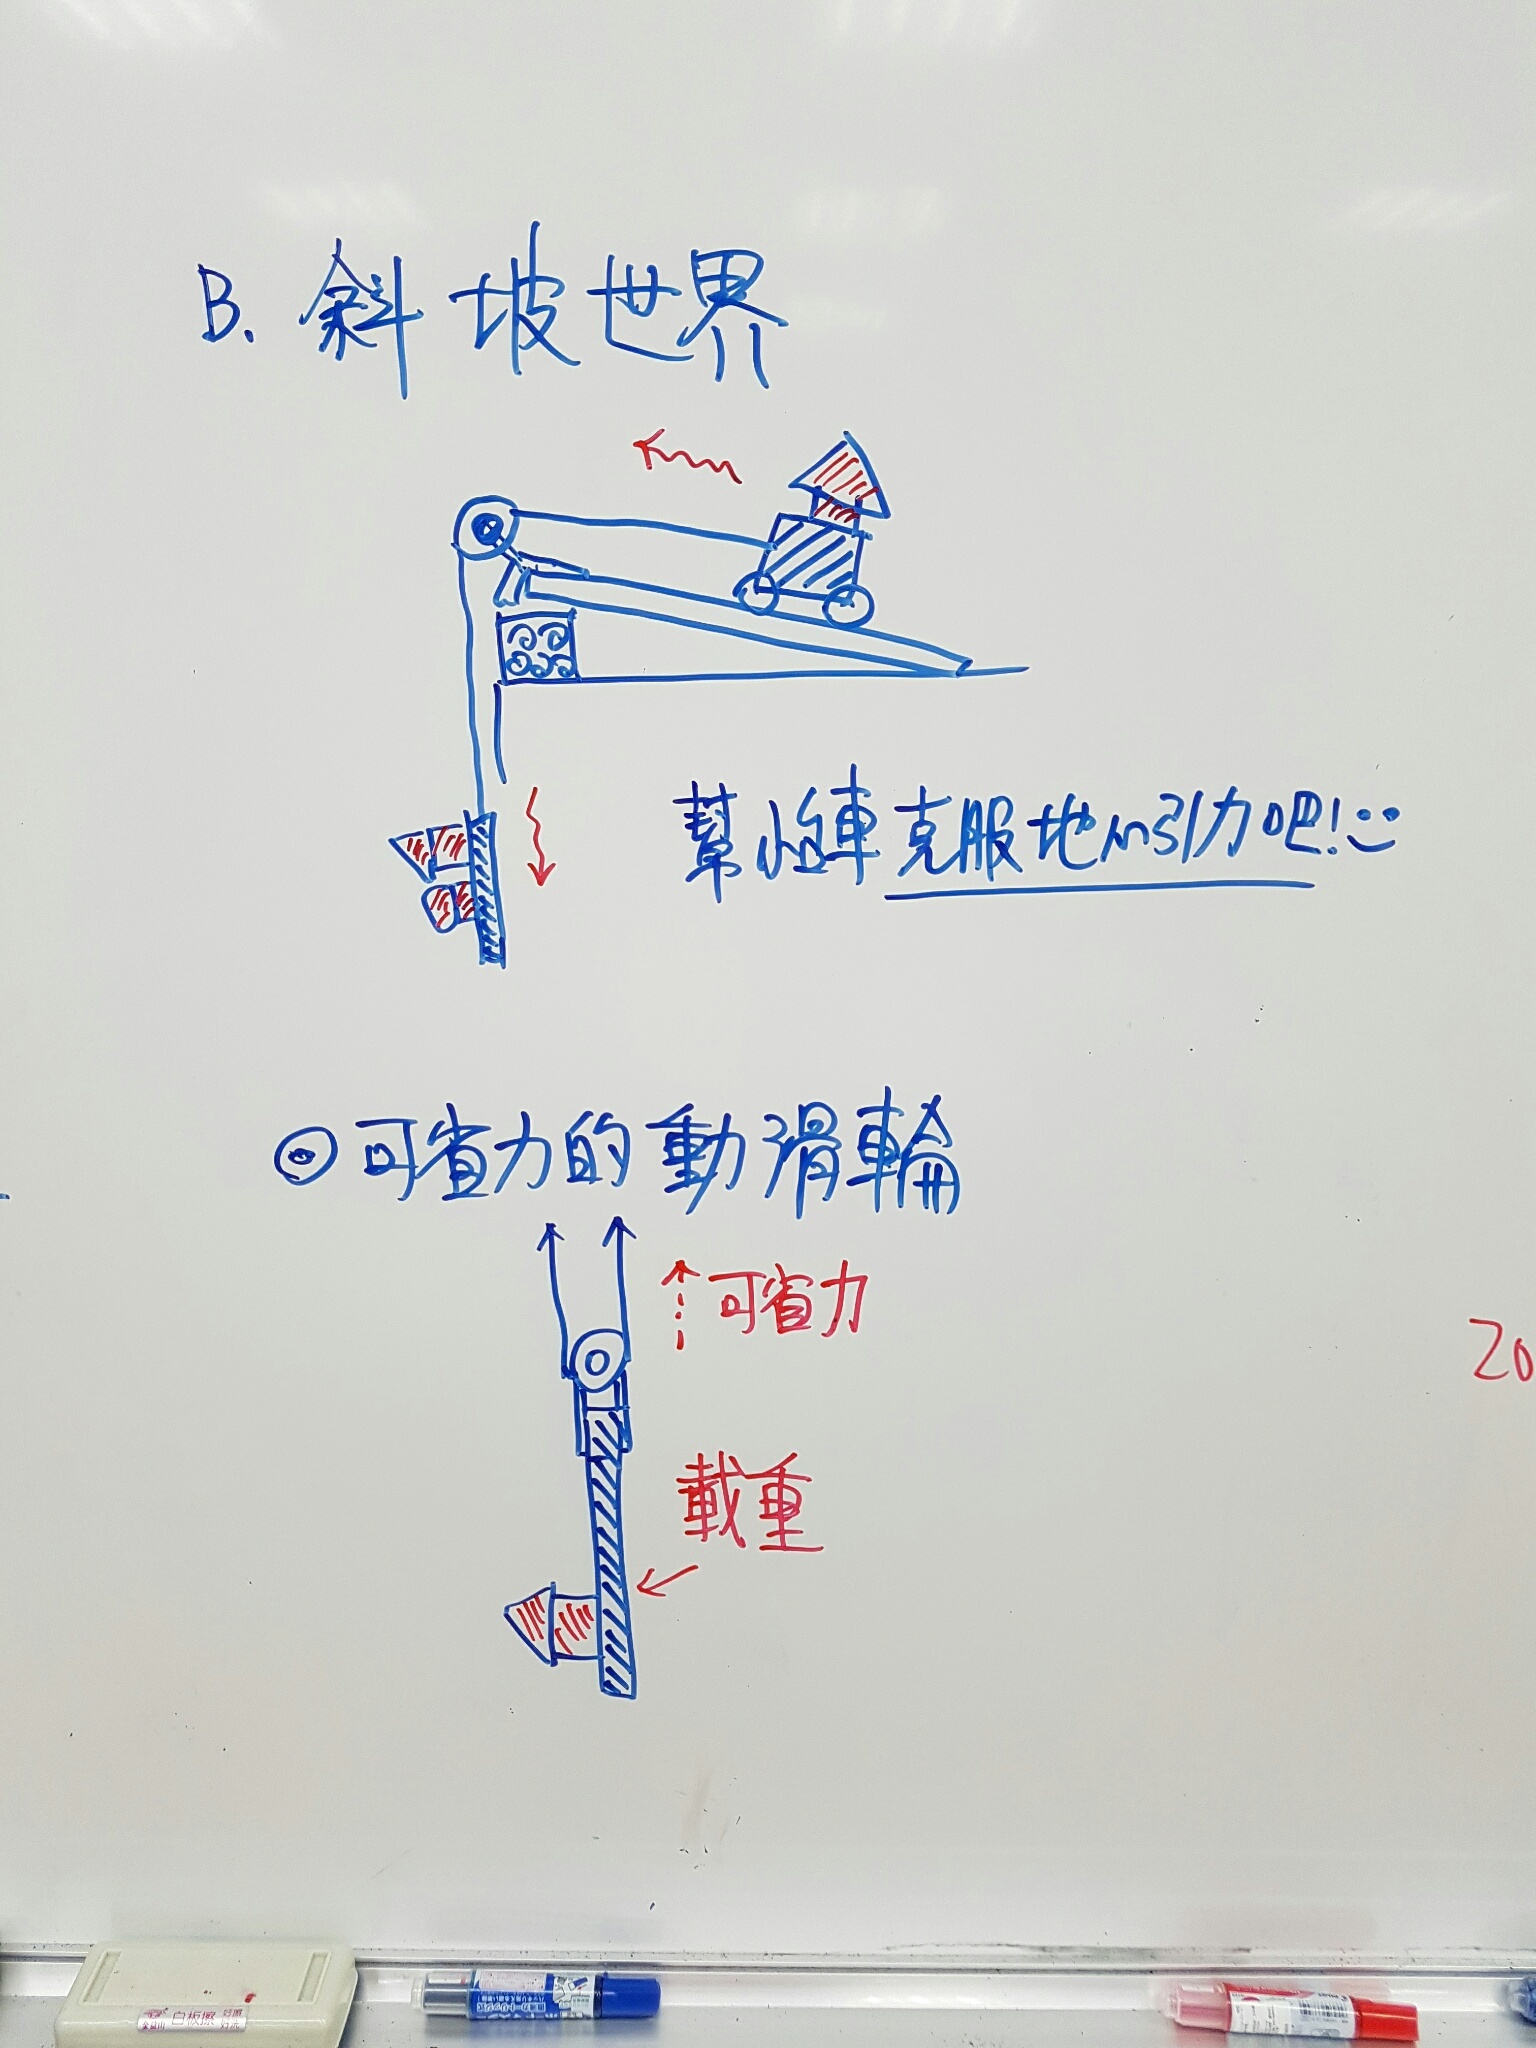 B. 斜坡世界
幫小車克服地心引力吧!
可省力的動滑輪
可省力
載重
20
白板擦